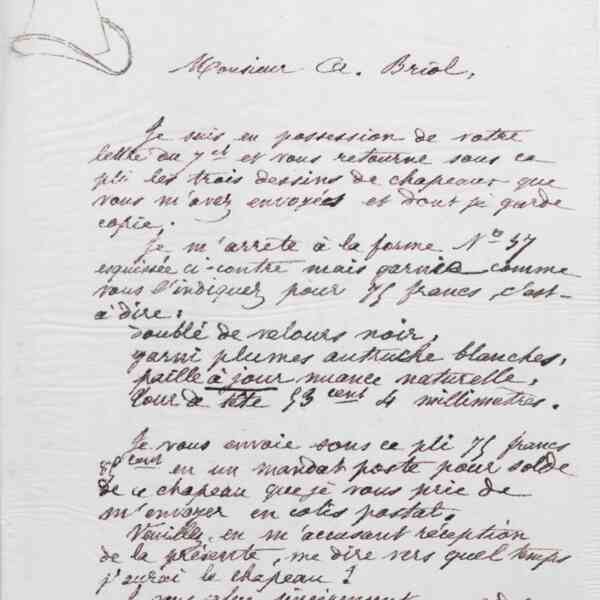 Monsieur A. Briol,
Je suis en possession de votre
lettre du 7 et et vous retourne sous ce
pli les trois dessins de chapeaux que
vous m'avez envoyées et dont je garde
copie.
Je m'arrête à la forme No 37
esquissée ci-contre mais garnie comme
vous l'indiquez pour 75 francs, c'est-
à dire:
doublé de velours noir,
garni plumes autruche blanches,
paille à jour nuance naturelle,
Tour de tête 53 cent 4 millimètres.
Je vous envoie sous ce pli 75 francs
cent en un mandat poste pour solde
de ce chapeau que je vous prie de
m'envoyer en colis postal.
Veuillez, en m'accusant réception
de la présente, me dire vers quel temps
j'aurai le chapeau?
plus sincèrement